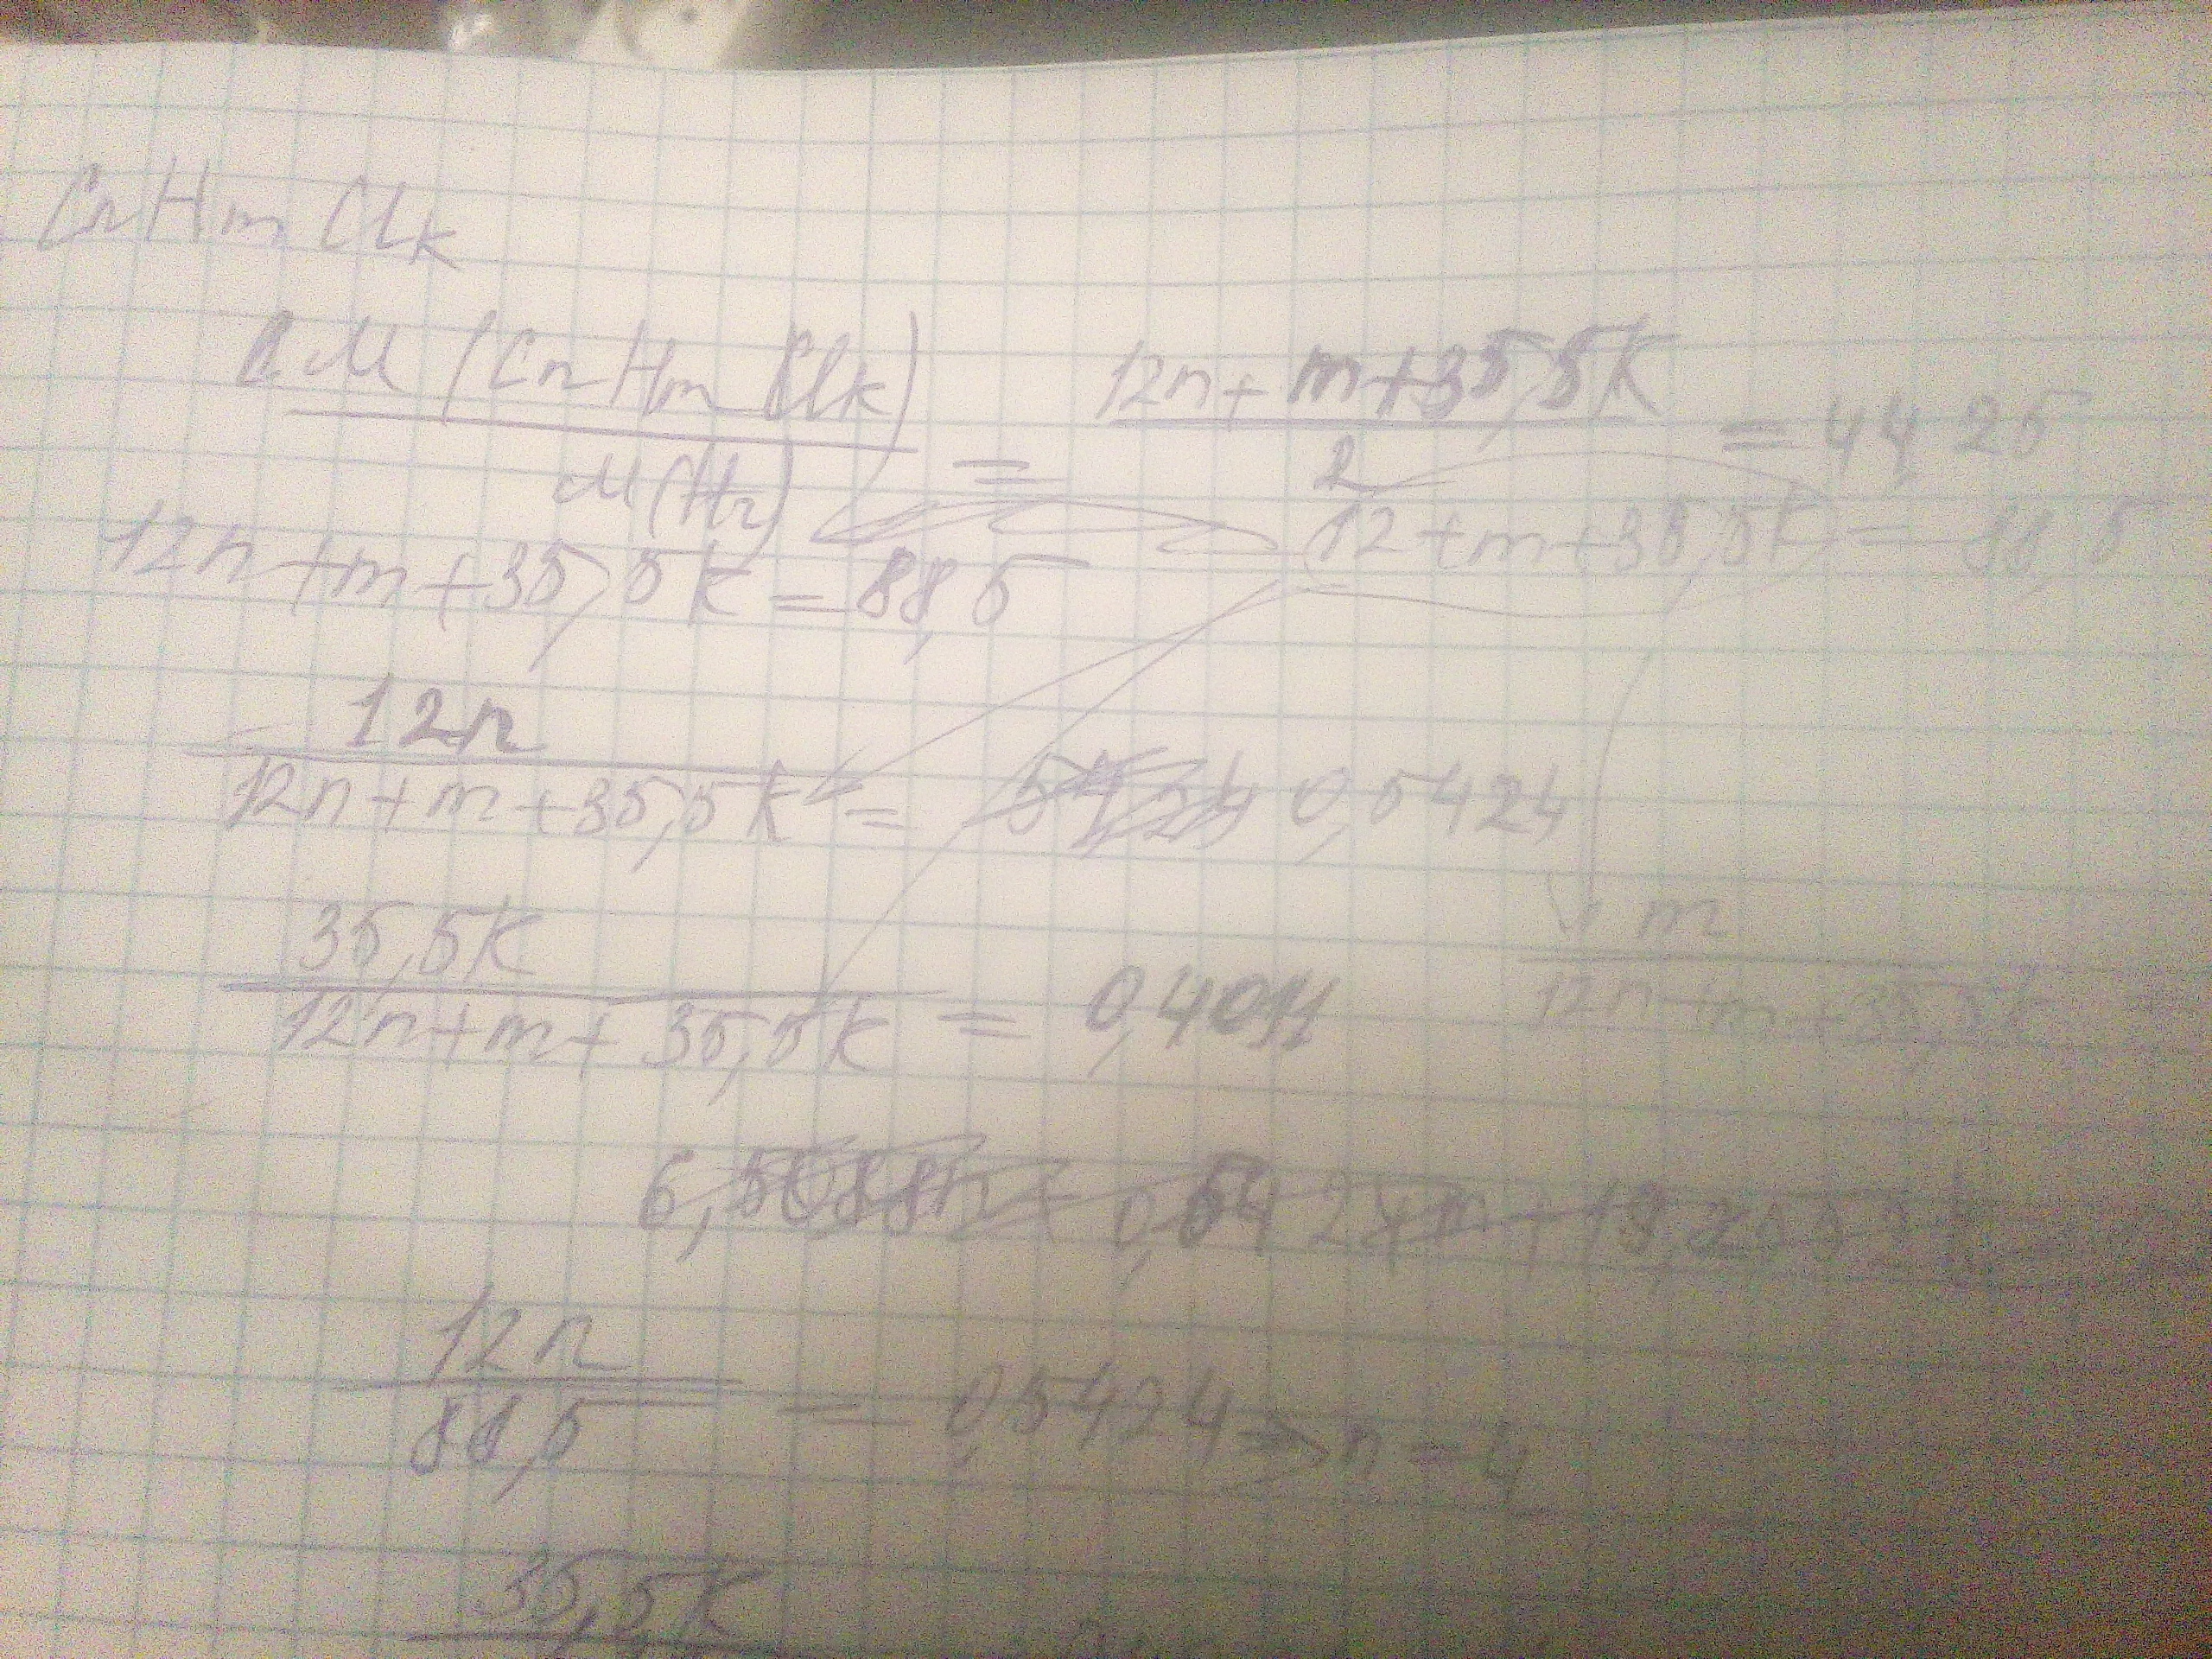 CnHmClk
M(CnHmClk) / M(H2) = 12n+m+35,5k / 2 = 44,25
12+m+35,5k = 88,5
12n+m+35,5k = 88,5
12n / 12n+m+35,5k = 0,5424
35,5k / 12n+m+35,5k = 0,4011
m / 12n+m+35,5k
6,5088n + 0,5424m +
12n / 88,5 = 0,5424 => n = 4
35,5k